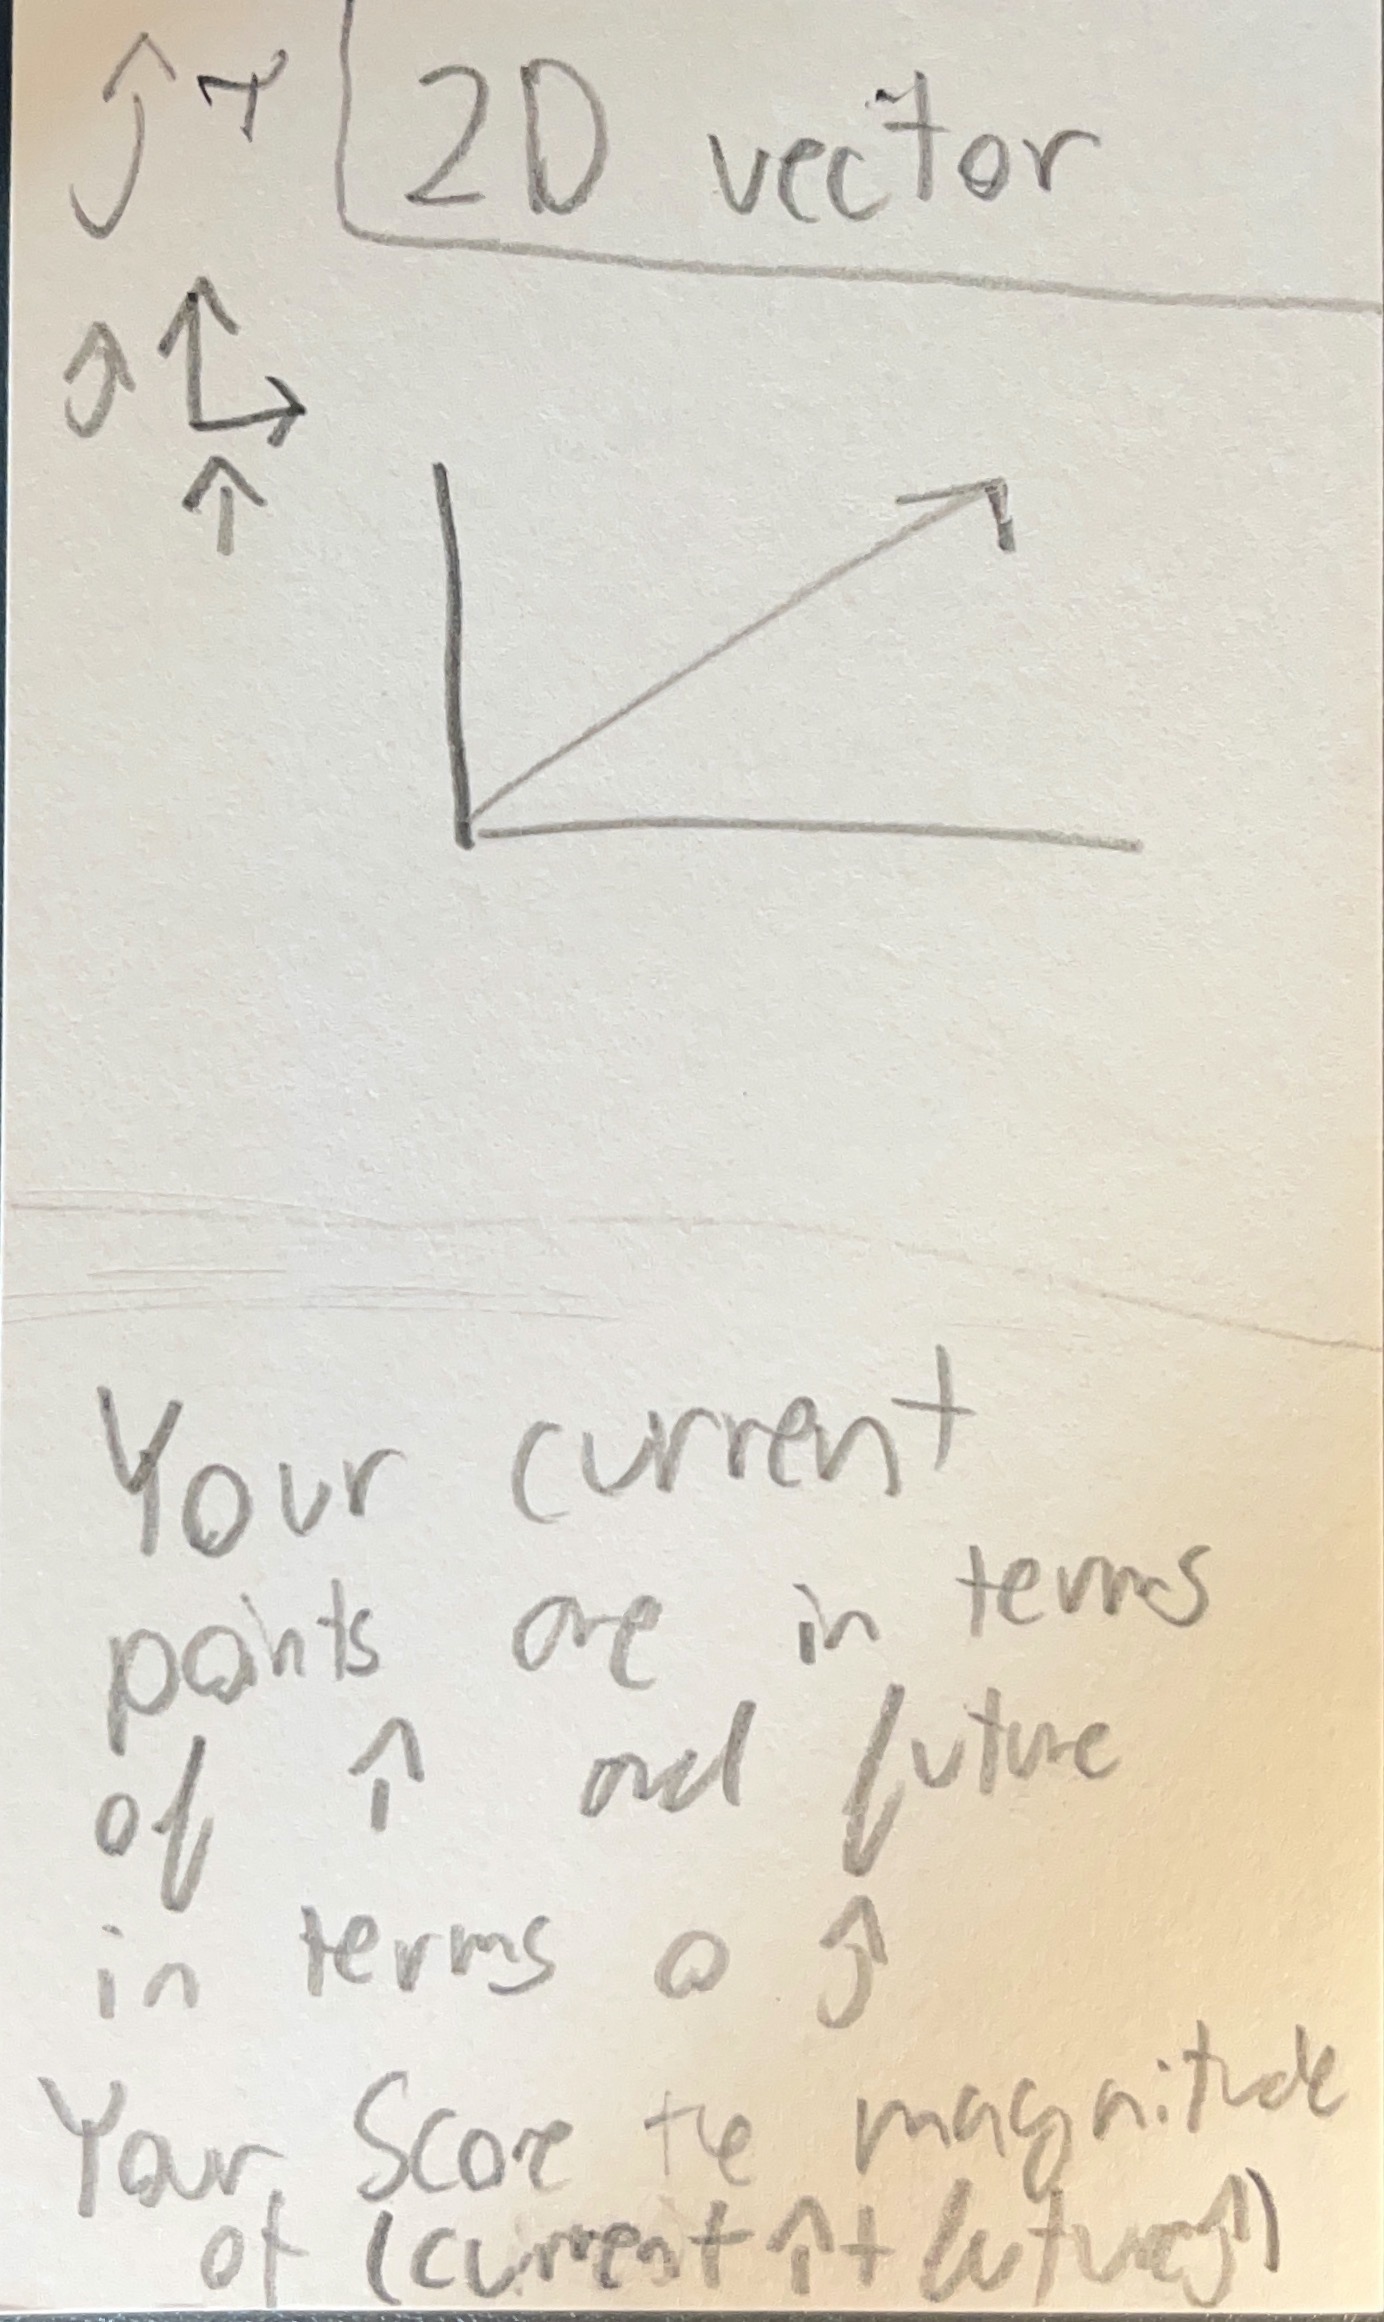 ĵ
2D vector
ĵ
î
Your current
points are in terms
of î and future
in terms o ĵ
Your Score the magnitude
of (current î + future ĵ)